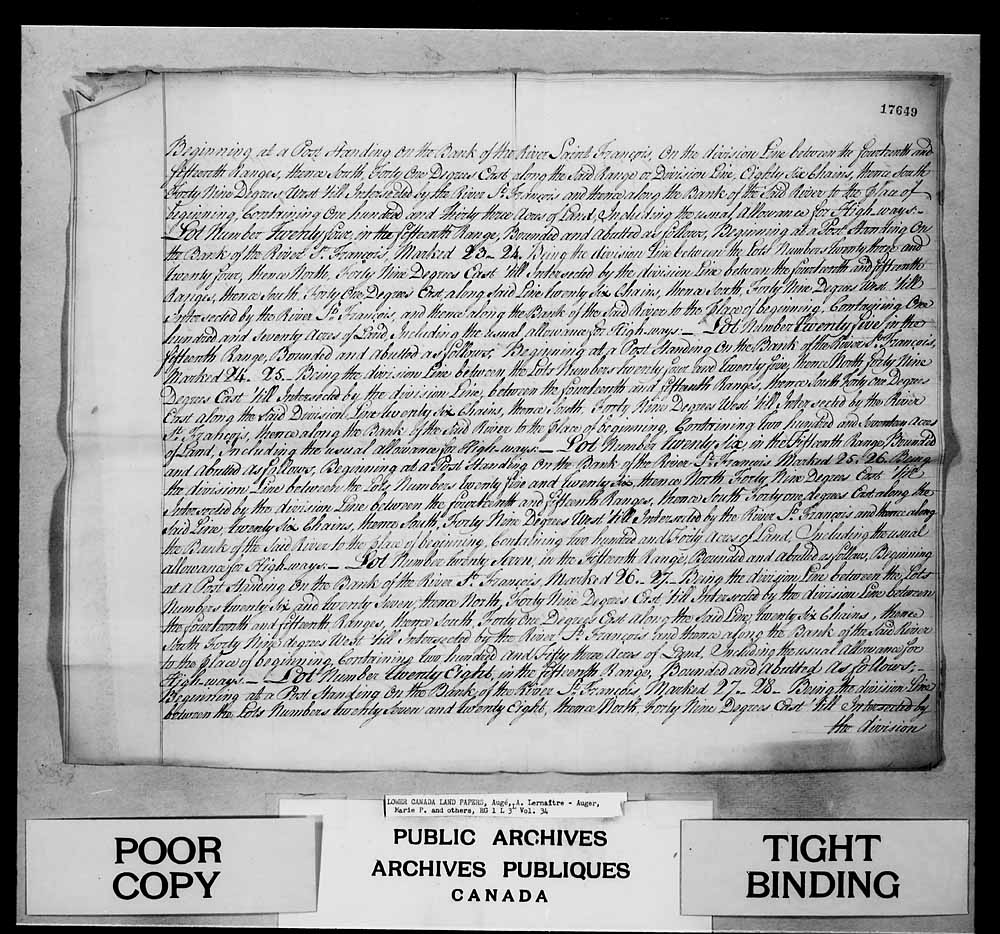 17649
Beginning at a Post Standing On the Bank of the River Saint François, On the division Line between the fourteenth and
fifteenth Ranges, thence South, Forty One Degrees East, along the Said Range or Division Line, Eighty Six Chains, thence South
Forty Nine Degrees West till Intersected by the River St. François and thence along the Bank of the Said River to the place of
beginning, Containing One hundred and Thirty three Acres of Land, Including the usual Allowance for High-ways:-
Lot Number twenty four, in the fifteenth Range, Bounded and abutted as follows, Beginning at a Post Standing On
the Bank of the River St. François, Marked 23- 24. Being the division Line between the Lots Numbers twenty three and
twenty four, thence North, Forty Nine Degrees East till Intersected by the division Line between the fourteenth and fifteenth
Ranges, thence South, Forty One Degrees East, along Said Line twenty Six Chains, thence South, Forty Nine Degrees West till
Intersected by the River St. François, and thence along the Bank of the Said River to the place of beginning, Containing One
hundred and Seventy Acres of Land, Including the usual allowance for High-ways:- Lot Number twenty five in the
fifteenth Range, Bounded and abutted as follows, Beginning at a Post Standing On the Bank of the River St. François,
Marked 24. 25. Being the division Line between the Lots Numbers twenty four and twenty five, thence North forty Nine
Degrees East till Intersected by the division Line, between the fourteenth and fifteenth Ranges, thence South Forty One Degrees
East along the Said Division Line twenty Six Chains, thence South, Forty Nine Degrees West till Intersected by the River
St. François, thence along the Bank of the Said River to the place of beginning, Containing two hundred and Seventeen Acres
of Land, Including the usual allowance for High-ways:- Lot Number twenty Six, in the Fifteenth Range, Bounded
and abutted as follows, Beginning at a Post Standing On the Bank of the River St. François Marked 25. 26. Being
the division Line between the Lots Numbers twenty five and twenty Six, thence North Forty Nine Degrees East till
Intersected by the division Line between the fourteenth and fifteenth Ranges, thence South Forty one degrees East along the
Said Line, twenty Six Chains, thence South, Forty Nine Degrees West till Intersected by the River St. François and thence along
the Bank of the Said River to the place of beginning, Containing two hundred and Forty Acres of Land, Including the usual
allowance for High-ways:- Lot Number twenty Seven, in the Fifteenth Range, Bounded and abutted as follows, Beginning
at a Post Standing On the Bank of the River St. François, Marked 26- 27- Being the division Line between the Lots
Numbers twenty Six and twenty Seven, thence North, Forty Nine Degrees East till Intersected by the division Line between
the fourteenth and fifteenth Ranges, thence South, Forty One Degrees East along the Said Line, twenty Six Chains, thence
South Forty Nine degrees West till Intersected by the River St. François and thence along the Bank of the Said River
to the place of beginning, Containing two hundred and Fifty three Acres of Land, Including the usual allowance for
High-ways:- Lot Number twenty Eight, in the fifteenth Range, Bounded and abutted as follows:-
Beginning at a Post Standing On the Bank of the River St. François Marked 27- 28- Being the division Line
between the Lots Numbers twenty Seven and twenty Eight, thence North, Forty Nine Degrees East till Intersected by
the division
LOWER CANADA LAND PAPERS, Augé, A. Lernaître - Auger,
Marie P. and others, RG 1 L 3L Vol. 34
PUBLIC ARCHIVES
ARCHIVES PUBLIQUES
CANADA
POOR
COPY
TIGHT
BINDING